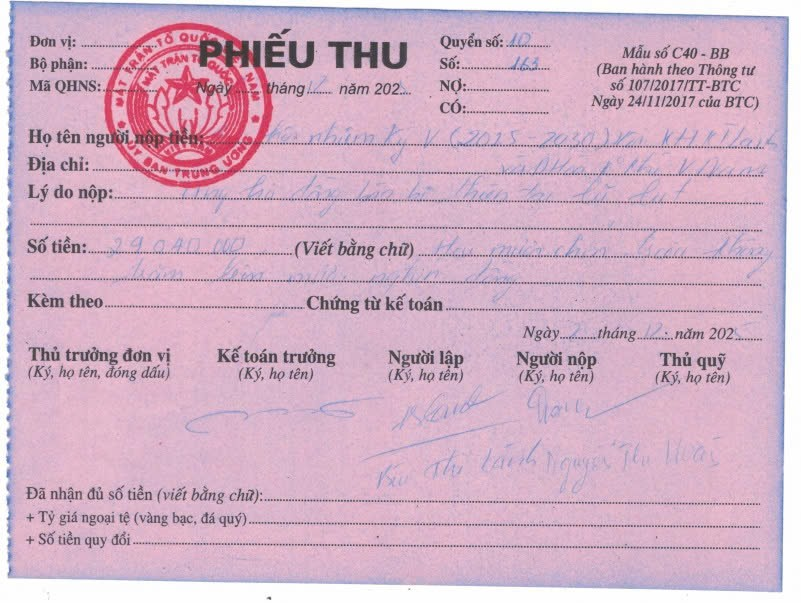 Đơn vị:
PHIẾU THU
Quyển số: 10
Mẫu số C40 - BB
Bộ phận:
Số: 163
(Ban hành theo Thông tư
Mã QHNS:
Ngày tháng 12 năm 202
NỢ:
số 107/2017/TT-BTC
CÓ:
Ngày 24/11/2017 của BTC)
MẶT TRẬN TỔ QUỐC VIỆT NAM
MẶT TRẬN TỔ QUỐC
ỦY BAN TRUNG ƯƠNG
Họ tên người nộp tiền: nhiệm kỳ V (2025 - 2030)
Địa chỉ: và
Lý do nộp: đồng bào bị thiên tai lũ lụt
Số tiền: 29.040.000 (Viết bằng chữ) Hai mươi chín triệu không
trăm bốn mươi nghìn đồng
Kèm theo Chứng từ kế toán
Ngày tháng 12 năm 2025
Thủ trưởng đơn vị Kế toán trưởng Người lập Người nộp Thủ quỹ
(Ký, họ tên, đóng dấu) (Ký, họ tên) (Ký, họ tên) (Ký, họ tên) (Ký, họ tên)
Thị Nguyễn Thu
Đã nhận đủ số tiền (viết bằng chữ):
+ Tỷ giá ngoại tệ (vàng bạc, đá quý)
+ Số tiền quy đổi